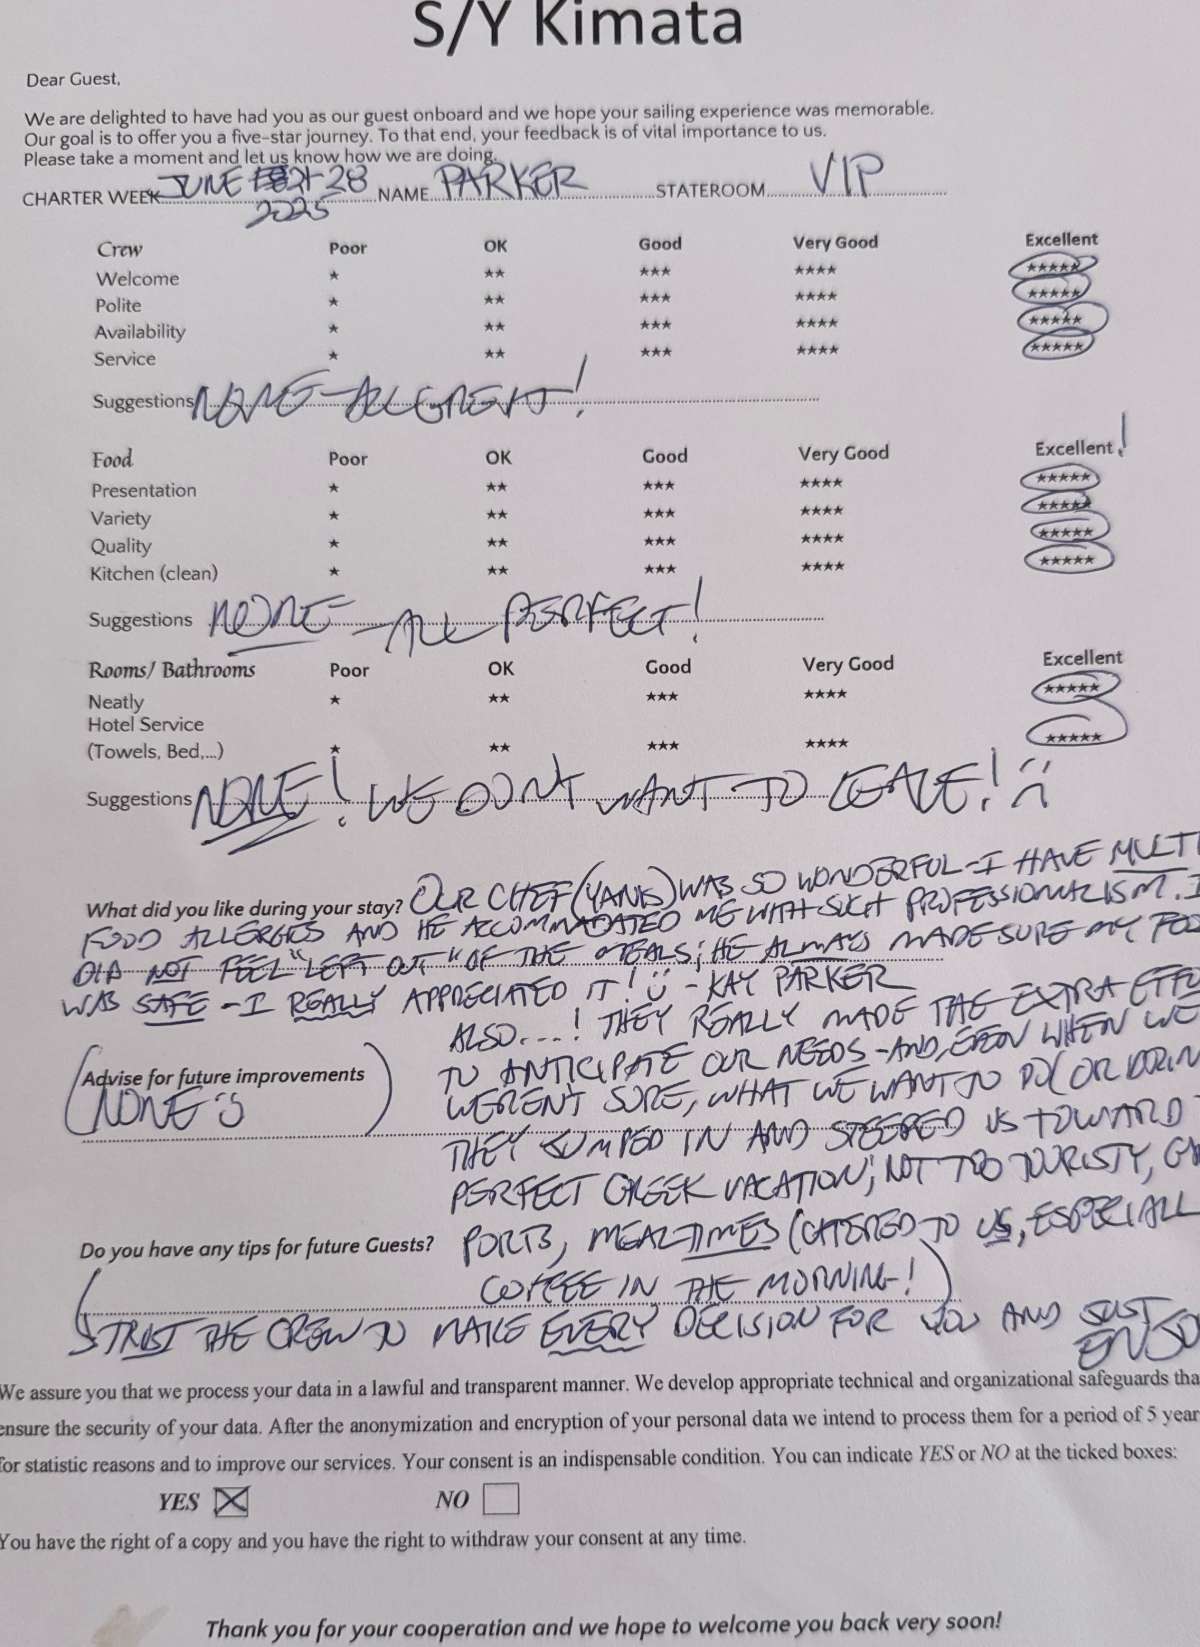 S/Y Kimata
Dear Guest,
We are delighted to have had you as our guest onboard and we hope your sailing experience was memorable.
Our goal is to offer you a five-star journey. To that end, your feedback is of vital importance to us.
Please take a moment and let us know how we are doing.
CHARTER WEEK JUNE 21-28 NAME PARKER STATEROOM VIP
2025
Crew Poor OK Good Very Good Excellent
Welcome ★ ★★ ★★★ ★★★★ ★★★★★
Polite ★ ★★ ★★★ ★★★★ ★★★★★
Availability ★ ★★ ★★★ ★★★★ ★★★★★
Service ★ ★★ ★★★ ★★★★ ★★★★★
Suggestions NONE - ALL GREAT!
Food Poor OK Good Very Good Excellent!
Presentation ★ ★★ ★★★ ★★★★ ★★★★★
Variety ★ ★★ ★★★ ★★★★ ★★★★★
Quality ★ ★★ ★★★ ★★★★ ★★★★★
Kitchen (clean) ★ ★★ ★★★ ★★★★ ★★★★★
Suggestions NONE - ALL PERFECT!
Rooms/ Bathrooms Poor OK Good Very Good Excellent
Neatly ★ ★★ ★★★ ★★★★ ★★★★★
Hotel Service
(Towels, Bed,...) ★ ★★ ★★★ ★★★★ ★★★★★
Suggestions NONE! WE DON'T WANT TO LEAVE! :(
What did you like during your stay? OUR CHEF (YANIS) WAS SO WONDERFUL - I HAVE MULTI
FOOD ALLERGIES AND HE ACCOMMADATED ME WITH SUCH PROFESSIONALISM. I
DID NOT FEEL "LEFT OUT" OF THE MEALS; HE ALWAYS MADE SURE MY FOO
WAS SAFE - I REALLY APPRECIATED IT! :) - KAY PARKER
ALSO....! THEY REALLY MADE THE EXTRA EFFO
TO ANTICIPATE OUR NEEDS - AND, EVEN WHEN WE
Advise for future improvements
(NONE :))
WEREN'T SURE, WHAT WE WANT TO DO (OR DRIN
THEY JUMPED IN AND STEERED US TOWARD
PERFECT GREEK VACATION; NOT TOO TOURISTY,
Do you have any tips for future Guests? PORTS, MEAL-TIMES (CATERED TO US, ESPECIALL
COFFEE IN THE MORNING!)
TRUST THE CREW TO MAKE EVERY DECISION FOR YOU AND JUST
ENJO
We assure you that we process your data in a lawful and transparent manner. We develop appropriate technical and organizational safeguards tha
ensure the security of your data. After the anonymization and encryption of your personal data we intend to process them for a period of 5 year
for statistic reasons and to improve our services. Your consent is an indispensable condition. You can indicate YES or NO at the ticked boxes:
YES ☒ NO ☐
You have the right of a copy and you have the right to withdraw your consent at any time.
Thank you for your cooperation and we hope to welcome you back very soon!